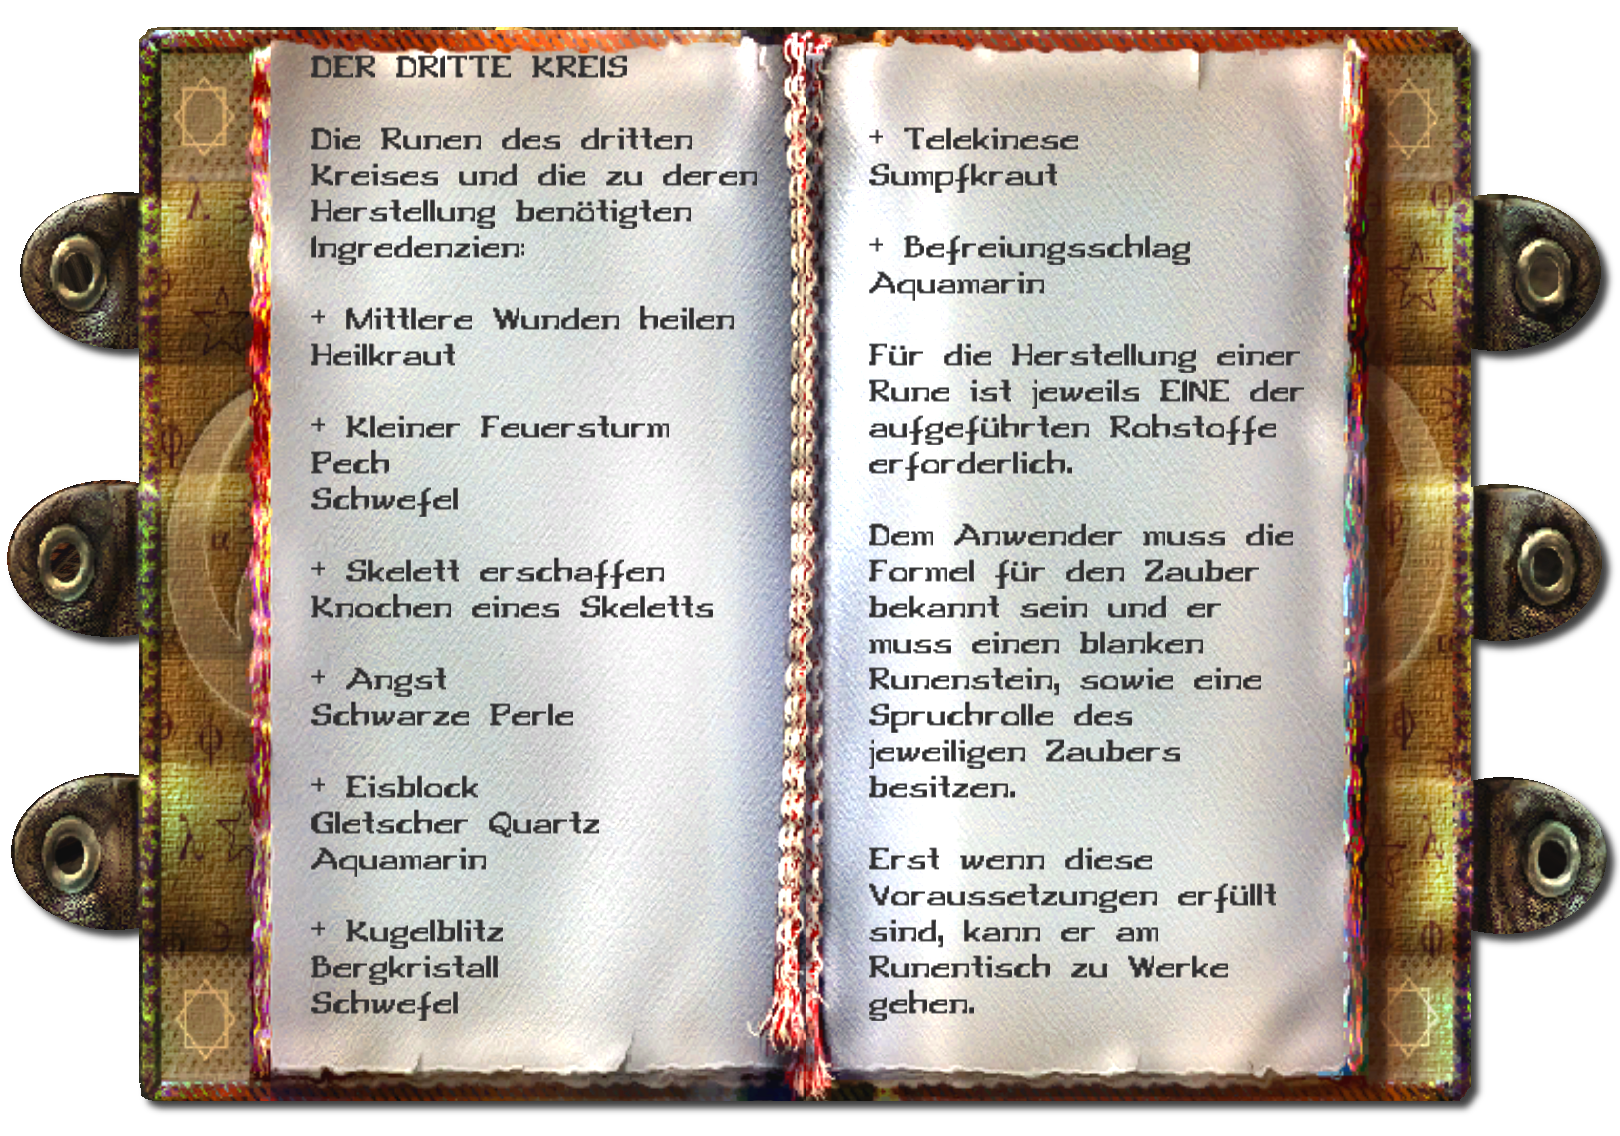 DER DRITTE KREIS
Die Runen des dritten
Kreises und die zu deren
Herstellung benötigten
Ingredenzien:
+ Mittlere Wunden heilen
Heilkraut
+ Kleiner Feuersturm
Pech
Schwefel
+ Skelett erschaffen
Knochen eines Skeletts
+ Angst
Schwarze Perle
+ Eisblock
Gletscher Quartz
Aquamarin
+ Kugelblitz
Bergkristall
Schwefel
+ Telekinese
Sumpfkraut
+ Befreiungsschlag
Aquamarin
Für die Herstellung einer
Rune ist jeweils EINE der
aufgeführten Rohstoffe
erforderlich.
Dem Anwender muss die
Formel für den Zauber
bekannt sein und er
muss einen blanken
Runenstein, sowie eine
Spruchrolle des
jeweiligen Zaubers
besitzen.
Erst wenn diese
Voraussetzungen erfüllt
sind, kann er am
Runentisch zu Werke
gehen.